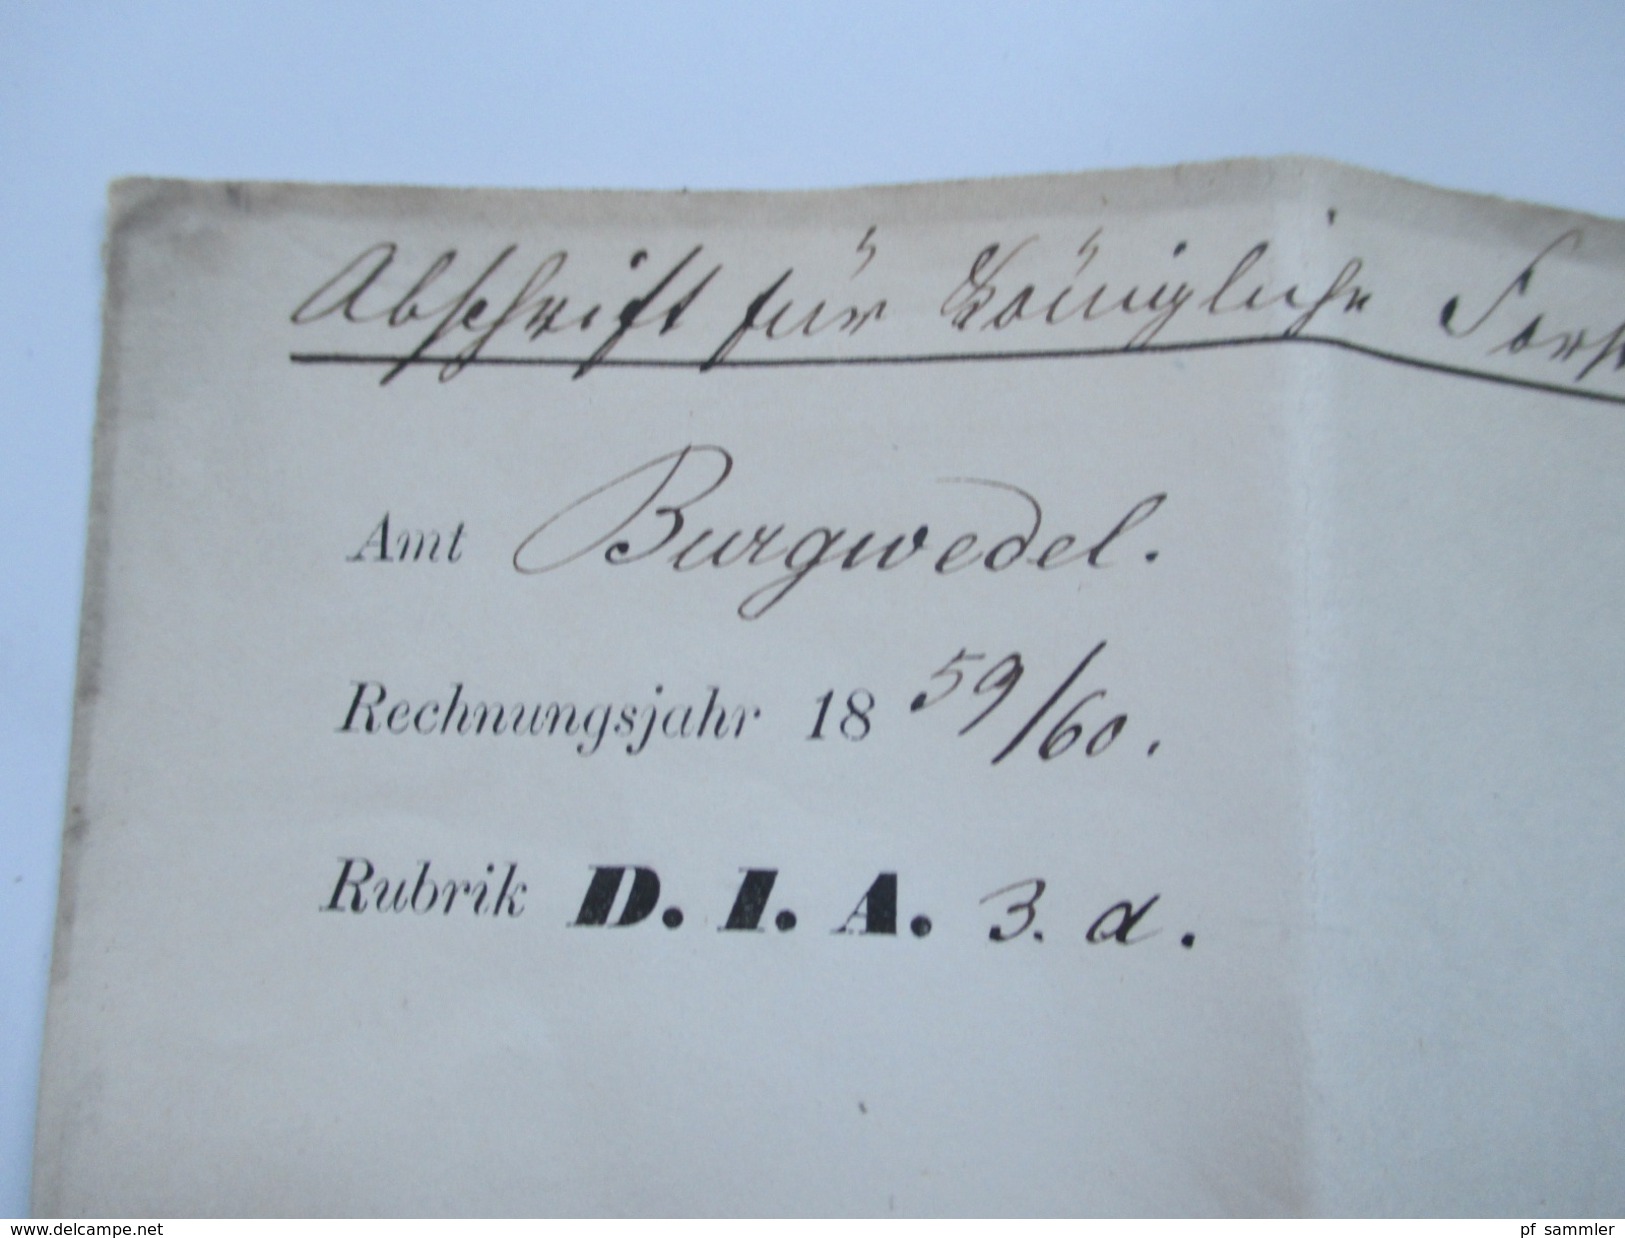 Abschrift für Königliche Forst
Amt Burgwedel.
Rechnungsjahr 18 59/60.
Rubrik D. I. A. 3. a.
www.delcampe.net
pf_sammler